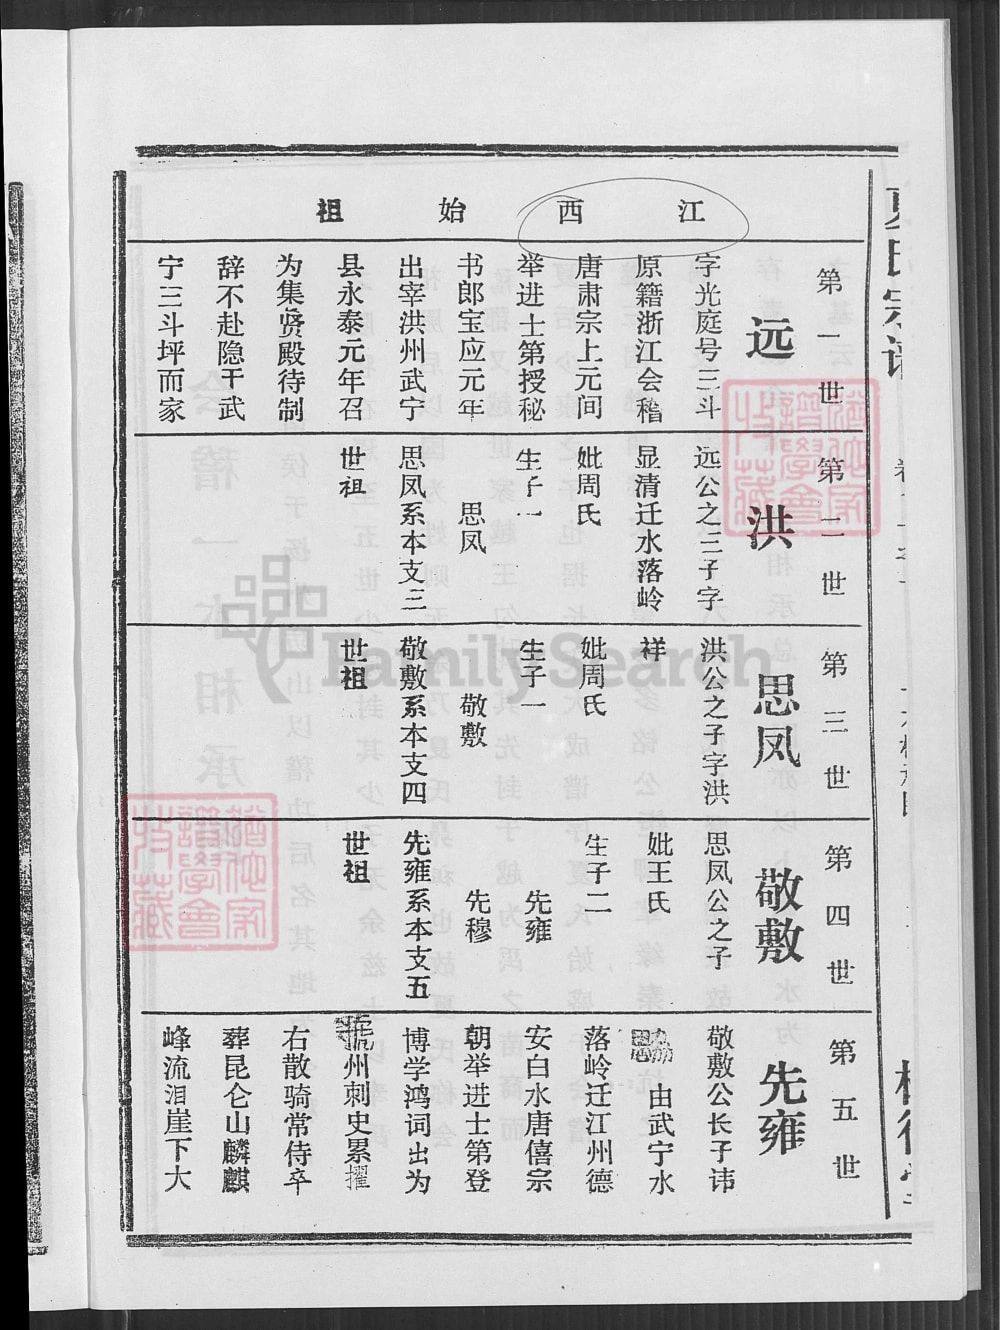 江西始祖
第一世
远
字光庭号三斗
原籍浙江会稽
唐肃宗上元间
举进士第授秘
书郎宝应元年
出宰洪州武宁
县永泰元年召
为集贤殿待制
辞不赴隐于武
宁三斗坪而家
第二世
洪
远公之三子字
显清迁水落岭
妣周氏
生子一
思凤
思凤系本支三
世祖
第三世
思凤
洪公之子字洪
祥
妣周氏
生子一
敬敷
敬敷系本支四
世祖
第四世
敬敷
思凤公之子
妣王氏
生子二
先雍
先穆
先雍系本支五
世祖
第五世
先雍
敬敷公长子讳
由武宁水
落岭迁江州德
安白水唐僖宗
朝举进士第登
博学鸿词出为
杭州刺史累擢
右散骑常侍卒
葬昆仑山麟麒
峰流泪崖下大
FamilySearch